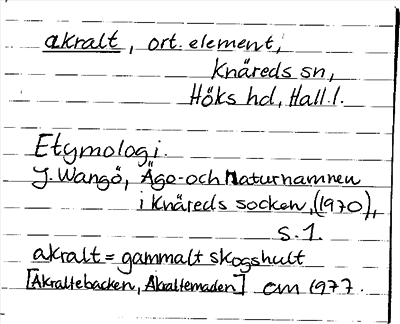 akralt, ort. element,
Knäreds sn,
Höks hd, Hall.l.
Etymologi.
J. Wangö, Ägo- och Naturnamnen
i Knäreds socken, (1970),
s. 1.
akralt = gammalt skogshult
[Akraltebacken, Akraltemaden] am 1977.